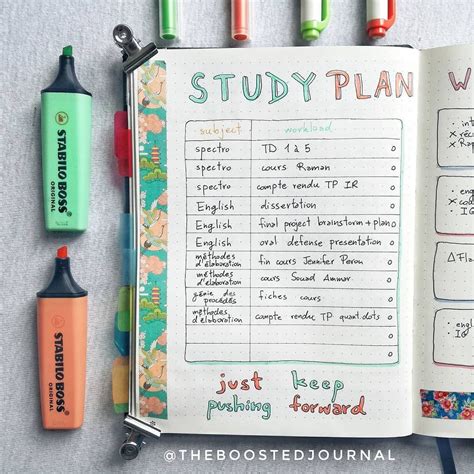 STUDY PLAN W
subject workload
spectro TD 1 à 5
spectro cours Raman
spectro compte rendu TP IR
English dissertation
English final project brainstorm + plan
English oral defense presentation
méthodes d'élaboration fin cours Jennifer Peron
méthodes d'élaboration cours Souad Ammar
génie des procédés fiches cours
méthodes d'élaboration compte rendu TP quant. dots
just keep
pushing forward
@THEBOOSTEDJOURNAL
STABILO BOSS
ORIGINAL
STABILO BOSS
ORIGINAL